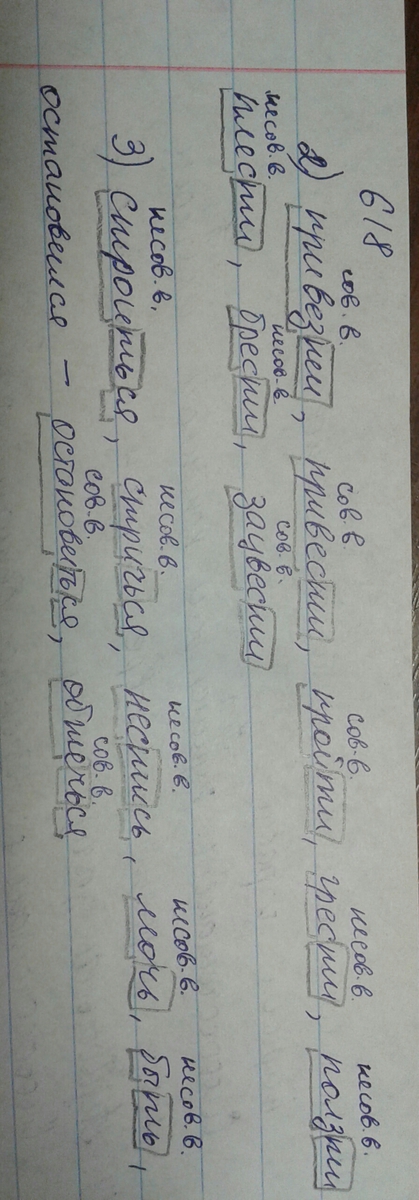 618
сов. в. сов. в сов. в. несов. в. несов. в.
2) привезти, привести, пройти, грести, ползти
несов. в. несов. в. сов. в.
плести, брести, зацвести
несов. в. несов. в. несов. в. несов. в. несов. в.
3) строиться, стричься, нестись, мочь, быть,
сов. в. сов. в
остановился – остановиться, обжечься